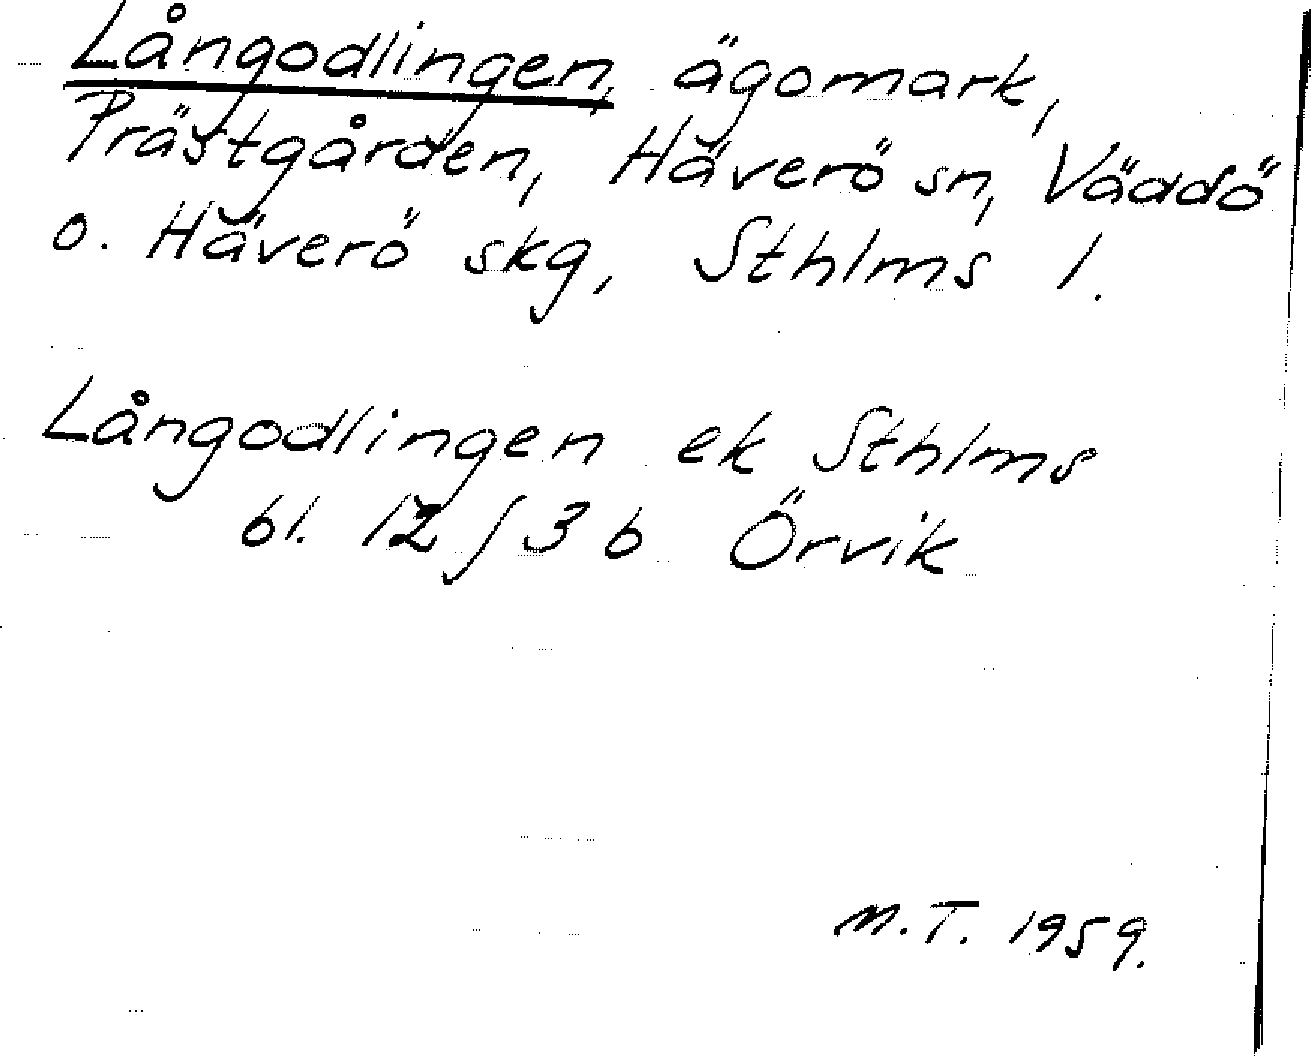 Långodlingen, ägomark,
Prästgården, Häverö sn, Väddö
o. Häverö skg, Sthlms l.
Långodlingen ek Sthlms
bl. 12 J 3 b Örvik
M.T. 1959.